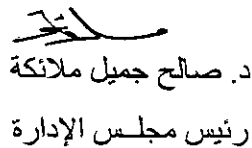 د. صالح جميل ملائكة
رئيس مجلس الإدارة